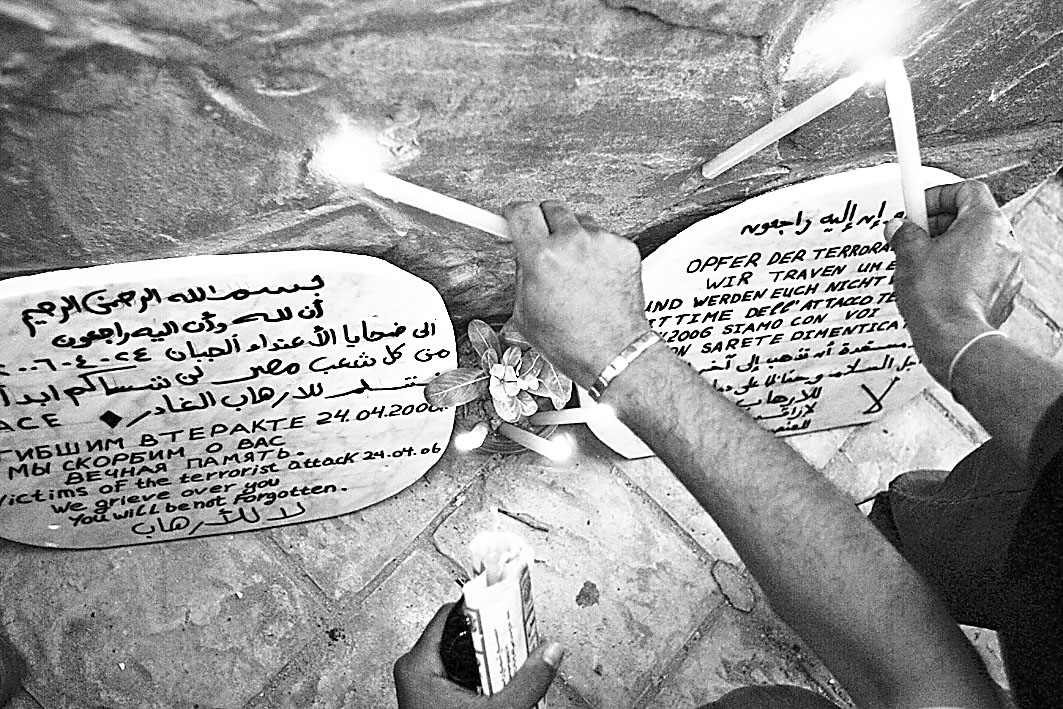 بسم الله الرحمن الرحيم
أن لله وأن اليه راجعون
الى ضحايا الأعتداء الجبان ٢٤-٤-٢٠٠٦
من كل شعب مصر لن ننساكم ابدا
للارهاب الغادر
ACE
ГИБШИМ В ТЕРАКТЕ 24.04.2006.
МЫ СКОРБИМ О ВАС
ВЕЧНАЯ ПАМЯТЬ.
Victims of the terrorist attack 24.04.06
We grieve over you
You will be not forgotten.
لا للأرهاب
إليه راجعون
OPFER DER TERRORA
WIR TRAVEN UM E
UND WERDEN EUCH NICHT
ITTIME DELL' ATTACCO TE
.2006 SIAMO CON VOI
ON SARETE DIMENTICA
مستعدة أن تذهب إلى آخر
السلام
للارهاب
لا